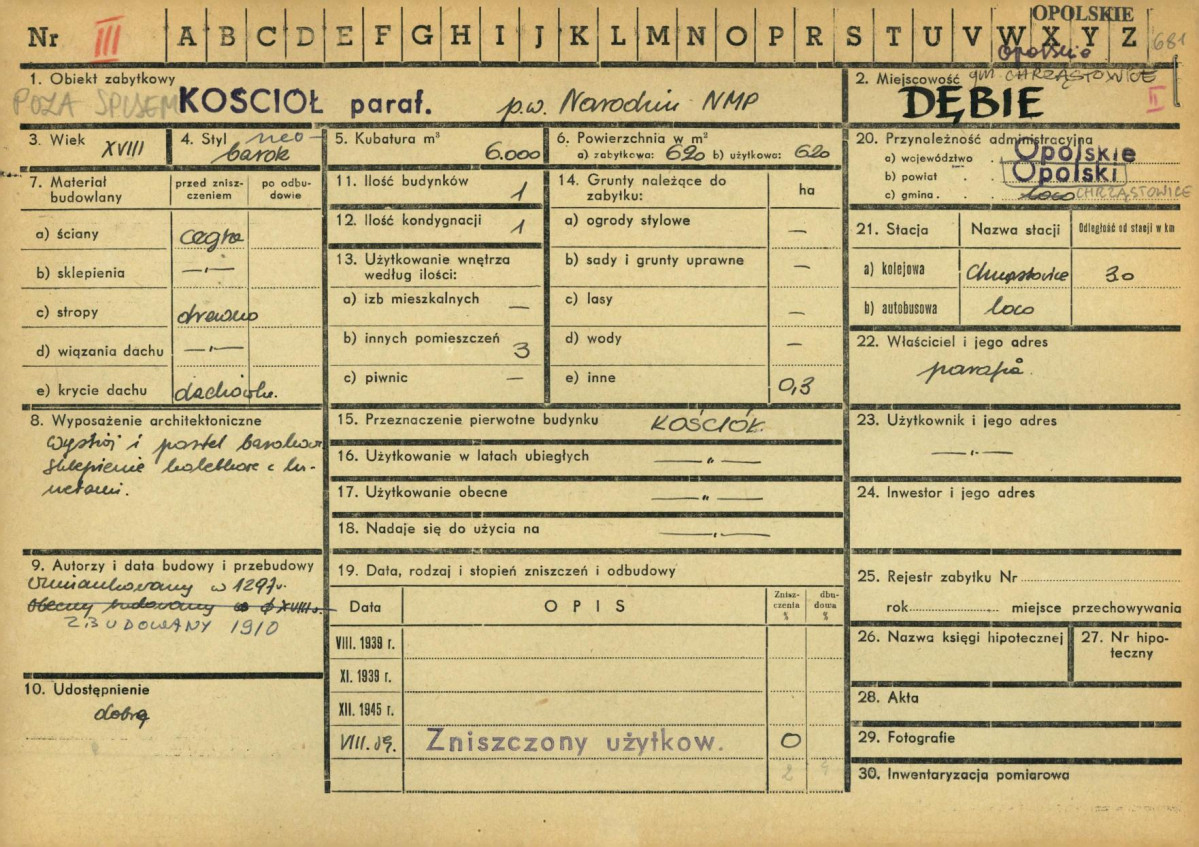 OPOLSKIE
Nr III A B C D E F G H I J K L M N O P R S T U V W X Y Z 681
Opolskie
1. Obiekt zabytkowy
POZA SPISEM KOSCIOŁ paraf. p.w. Narodzin NMP
2. Miejscowość gm. CHRZĄSTOWICE
DĘBIE II
3. Wiek XVIII
4. Styl neo-
barok
5. Kubatura m³
6.000
6. Powierzchnia w m²
a) zabytkowa: 620 b) użytkowa: 620
20. Przynależność administracyjna
a) województwo . Opolskie
b) powiat . . Opolski
c) gmina . . . loco CHRZĄSTOWICE
7. Materiał budowlany
przed znisz-
czeniem
po odbu-
dowie
a) ściany cegła
b) sklepienia —„—
c) stropy drewno
d) wiązania dachu —„—
e) krycie dachu dachówka.
11. Ilość budynków 1
12. Ilość kondygnacji 1
13. Użytkowanie wnętrza
według ilości:
a) izb mieszkalnych —
b) innych pomieszczeń 3
c) piwnic —
14. Grunty należące do
zabytku:
ha
a) ogrody stylowe —
b) sady i grunty uprawne —
c) lasy —
d) wody —
e) inne 0,3
21. Stacja Nazwa stacji Odległość od stacji w km
a) kolejowa Chrząstowice 3.0
b) autobusowa loco
22. Właściciel i jego adres
parafia
8. Wyposażenie architektoniczne
Wystrój i portal barokowe
sklepienie kolebkowe z lu-
netami.
15. Przeznaczenie pierwotne budynku KOŚCIÓŁ.
16. Użytkowanie w latach ubiegłych —„—
17. Użytkowanie obecne —„—
18. Nadaje się do użycia na —„—
23. Użytkownik i jego adres
—„—
24. Inwestor i jego adres
9. Autorzy i data budowy i przebudowy
Wzmiankowany w 1297 r.
Obecny budowany w XVIII w.
ZBUDOWANY 1910
10. Udostępnienie
dobre
19. Data, rodzaj i stopień zniszczeń i odbudowy
Data OPIS
Znisz-
czenia
%
dbu-
dowa
%
VIII. 1939 r.
XI. 1939 r.
XII. 1945 r.
VIII. 59. Zniszczony użytkow. 0
2
25. Rejestr zabytku Nr
rok miejsce przechowywania
26. Nazwa księgi hipotecznej
27. Nr hipo-
teczny
28. Akta
29. Fotografie
30. Inwentaryzacja pomiarowa